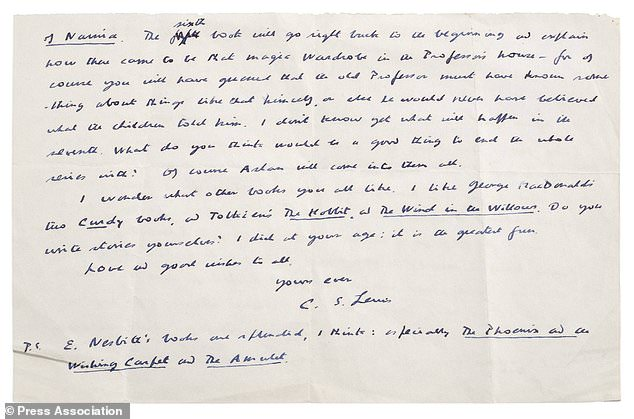 sixth
of Narnia. The book will go right back to the beginning and explain
how there came to be that magic Wardrobe in the Professor's house – for of
course you will have guessed that the old Professor must have known some
-thing about things like that himself, or else he would never have believed
what the children told him. I don't know yet what will happen in the
seventh. What do you think would be a good thing to end the whole
series with? Of course Aslan will come into them all.
I wonder what other books you all like. I like George MacDonald's
two Curdy books, and Tolkien's The Hobbit, and The Wind in the Willows. Do you
write stories yourselves? I did at your age: it is the greatest fun.
Love and good wishes to all.
yours ever
C. S. Lewis
P.S. E. Nesbitt's books are splendid, I think: especially The Phoenix and the
Wishing Carpet and The Amulet.
© Press Association